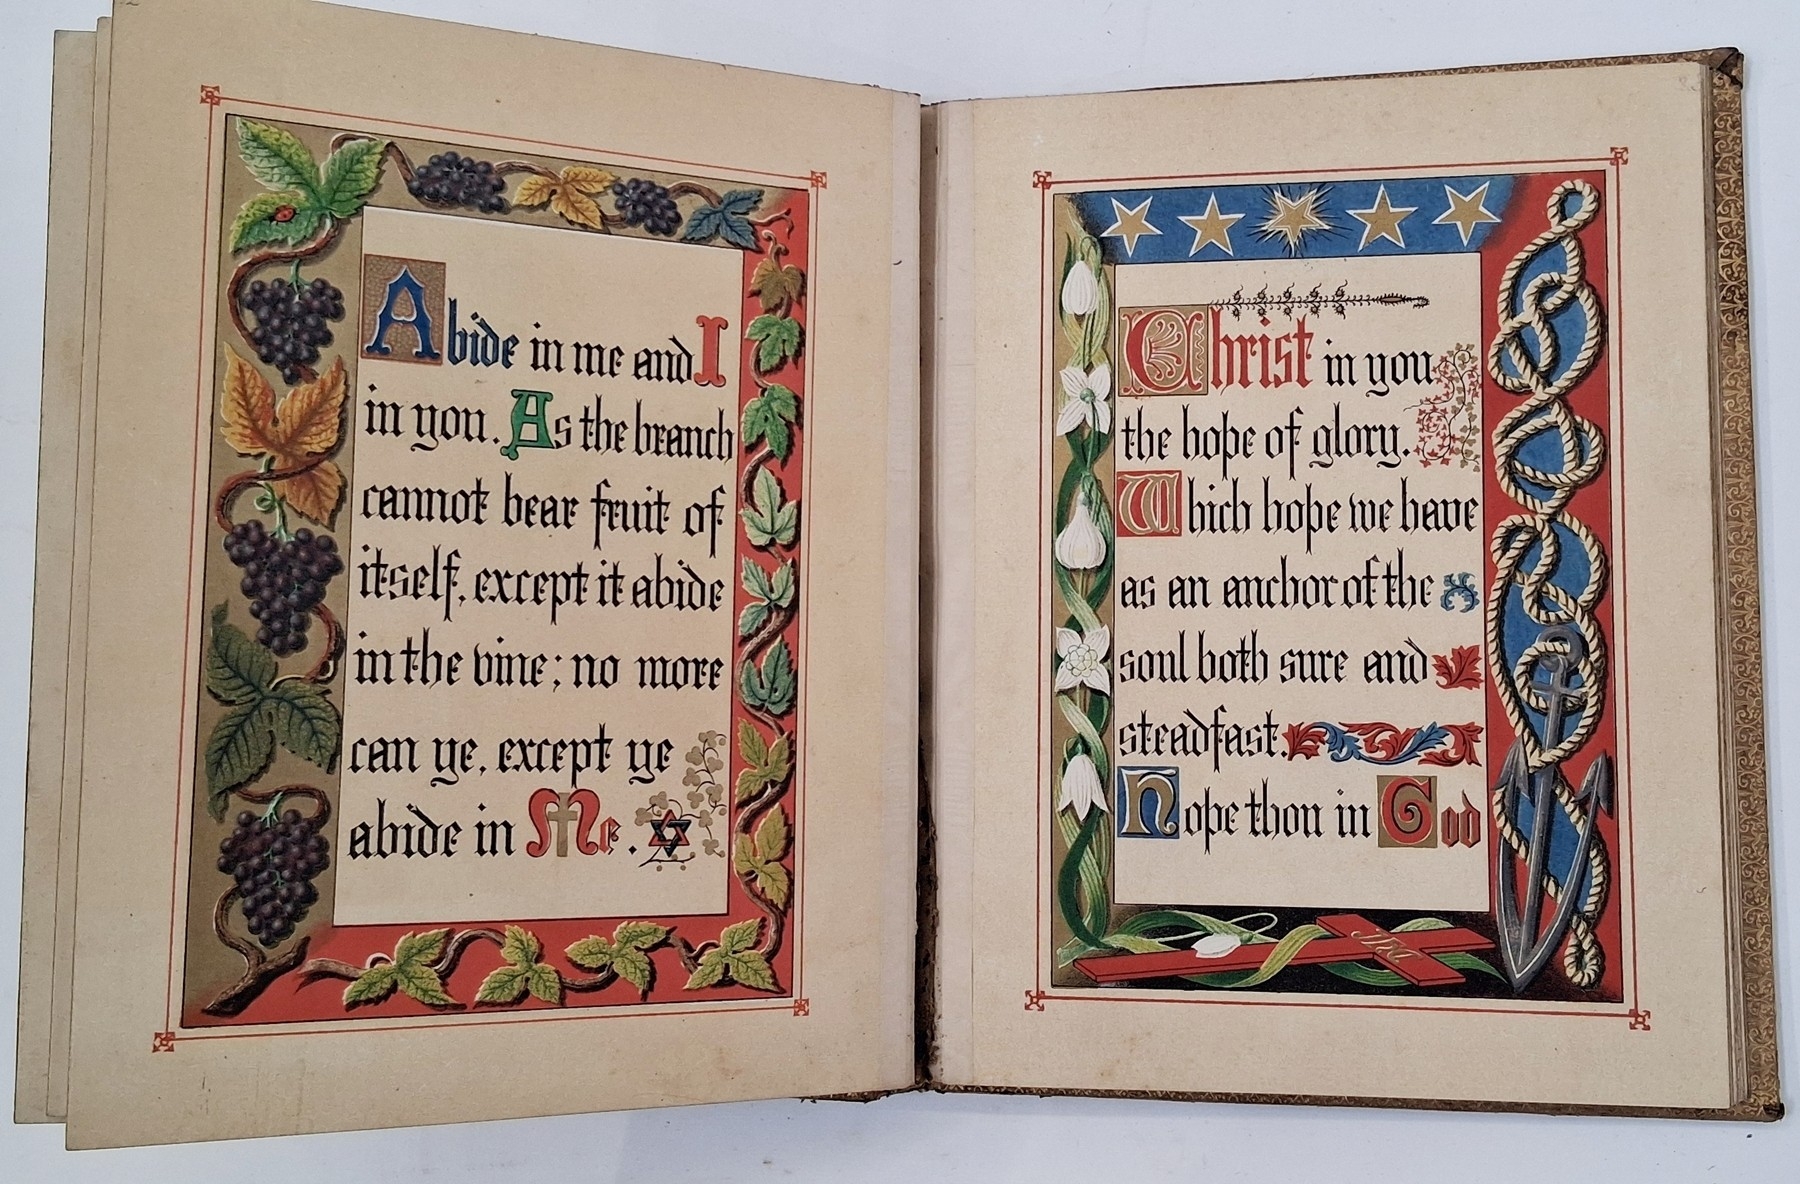 Abide in me and I
in you. As the branch
cannot bear fruit of
itself, except it abide
in the vine; no more
can ye, except ye
abide in Me.
Christ in you
the hope of glory.
Which hope we have
as an anchor of the
soul both sure and
steadfast.
Hope thou in God